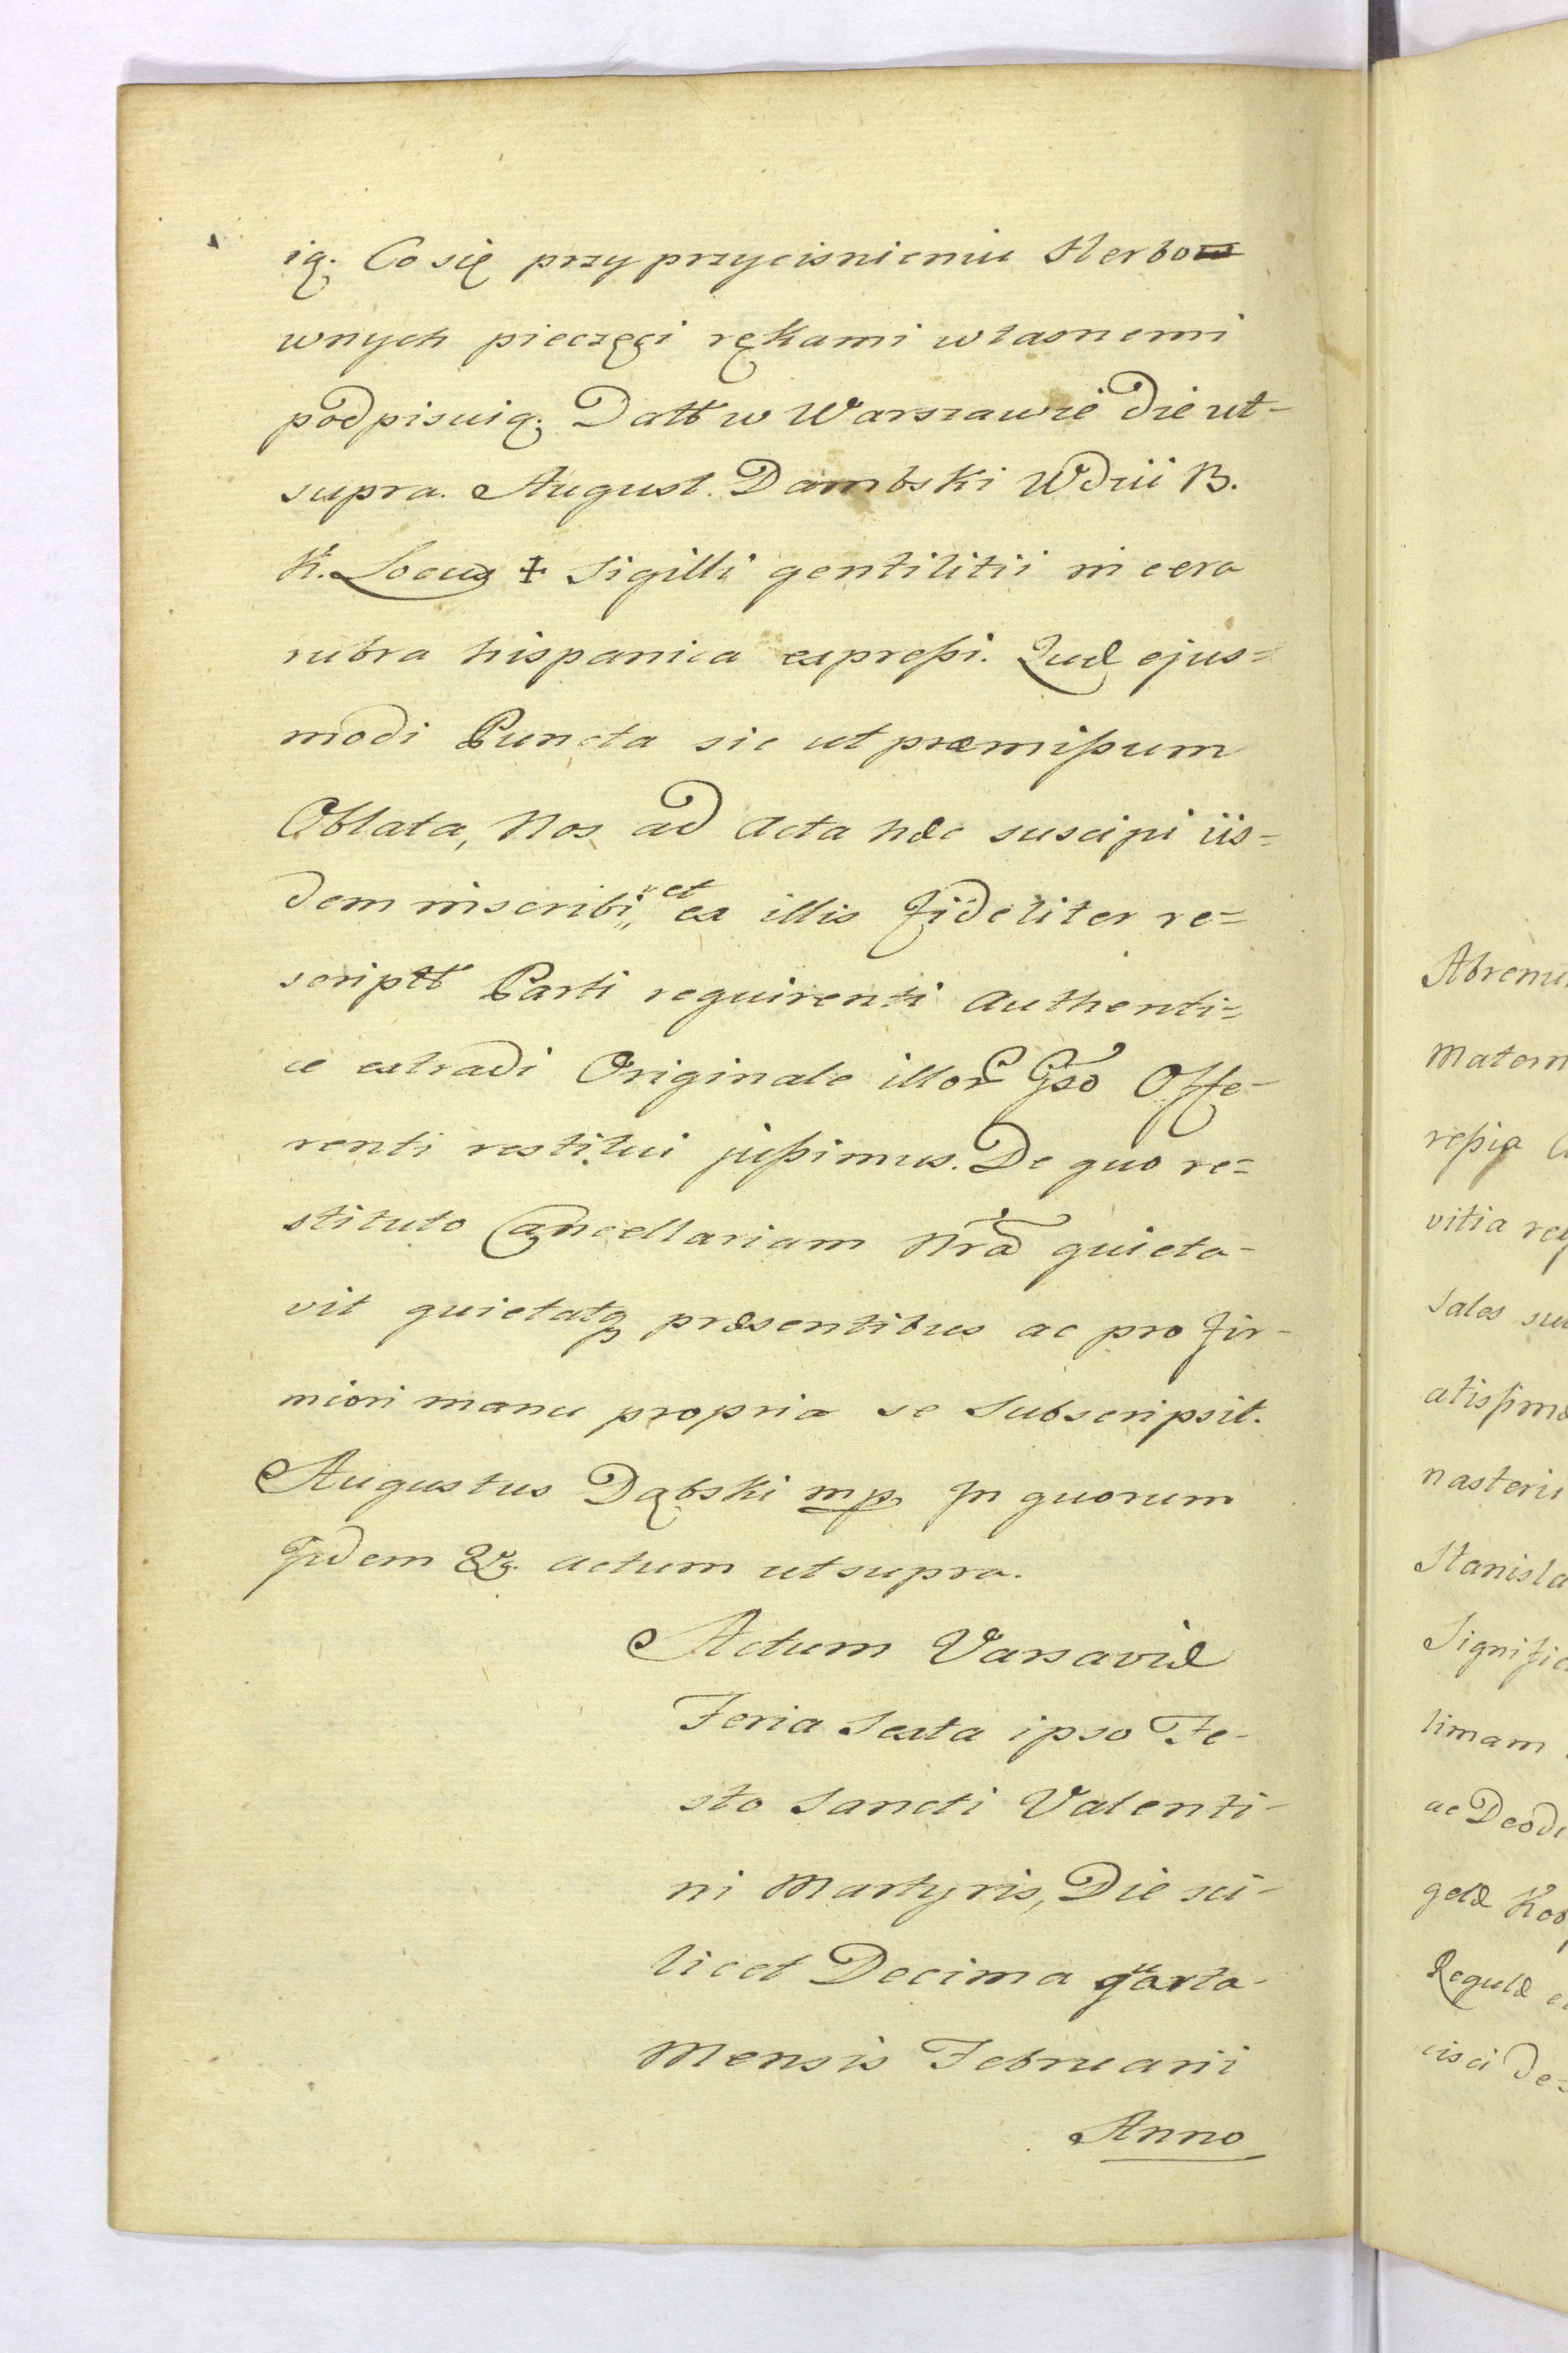 ią. Co się przy przyciśnieniu Herbow
wnych pieczęci rękami własnemi
podpisuią. Datt w Warszawie Die ut-
supra. August. Dambski Wdzii B.
K. Locus ‡ Sigilli gentilitii in cera
rubra hispanica expressi. Quæ ejus=
modi Puncta sic ut præmissum
Oblata, Nos ad Acta hæc suscipi iis=
dem inscribi, et ex illis fideliter re=
scriptt Parti requirenti Authenti=
ce extradi Originale illor Gso Offe-
renti restitui jussimus. De quo re=
stituto Cancellariam Nrã quieta-
vit quietatq præsentibus ac pro fir-
miori manu propria se Subscripsit.
Augustus Dąbski mp. In quorum
fidem &c. actum ut supra.
Actum Varsaviæ
Feria Sexta ipso Fe-
sto Sancti Valenti-
ni Martyris, Die sci-
licet Decima qarta-
Mensis Februarii
Anno
Matern
ressia
vitia
Sales
atissimæ
nasterii
Stanisla
Signific
timam
ac Deodi
gelæ
Regulæ
cisci De=